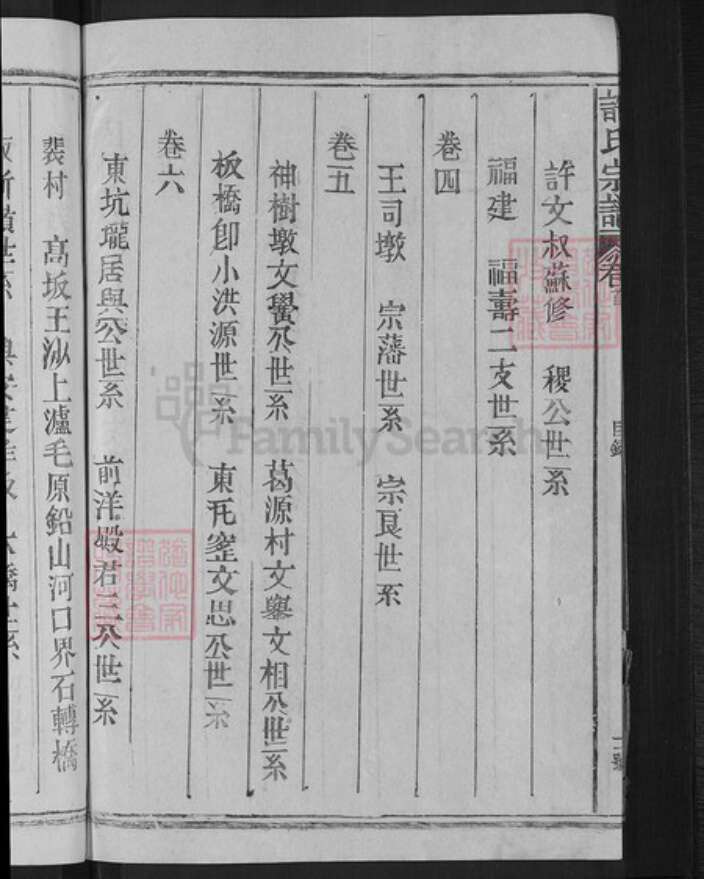 許氏宗譜 卷首 目錄
許文叔蘇修 稷公世系
福建 福壽二支世系
卷四
王司墩 宗藩世系 宗良世系
卷五
神樹墩文黌公世系 葛源村文舉文相公世系
板橋卽小洪源世系 東瓦窰文思公世系
卷六
東坑壠居與公世系 前洋殿君三公世系
裴村 高坂王沙上瀘毛原鉛山河口界石轉橋
FamilySearch